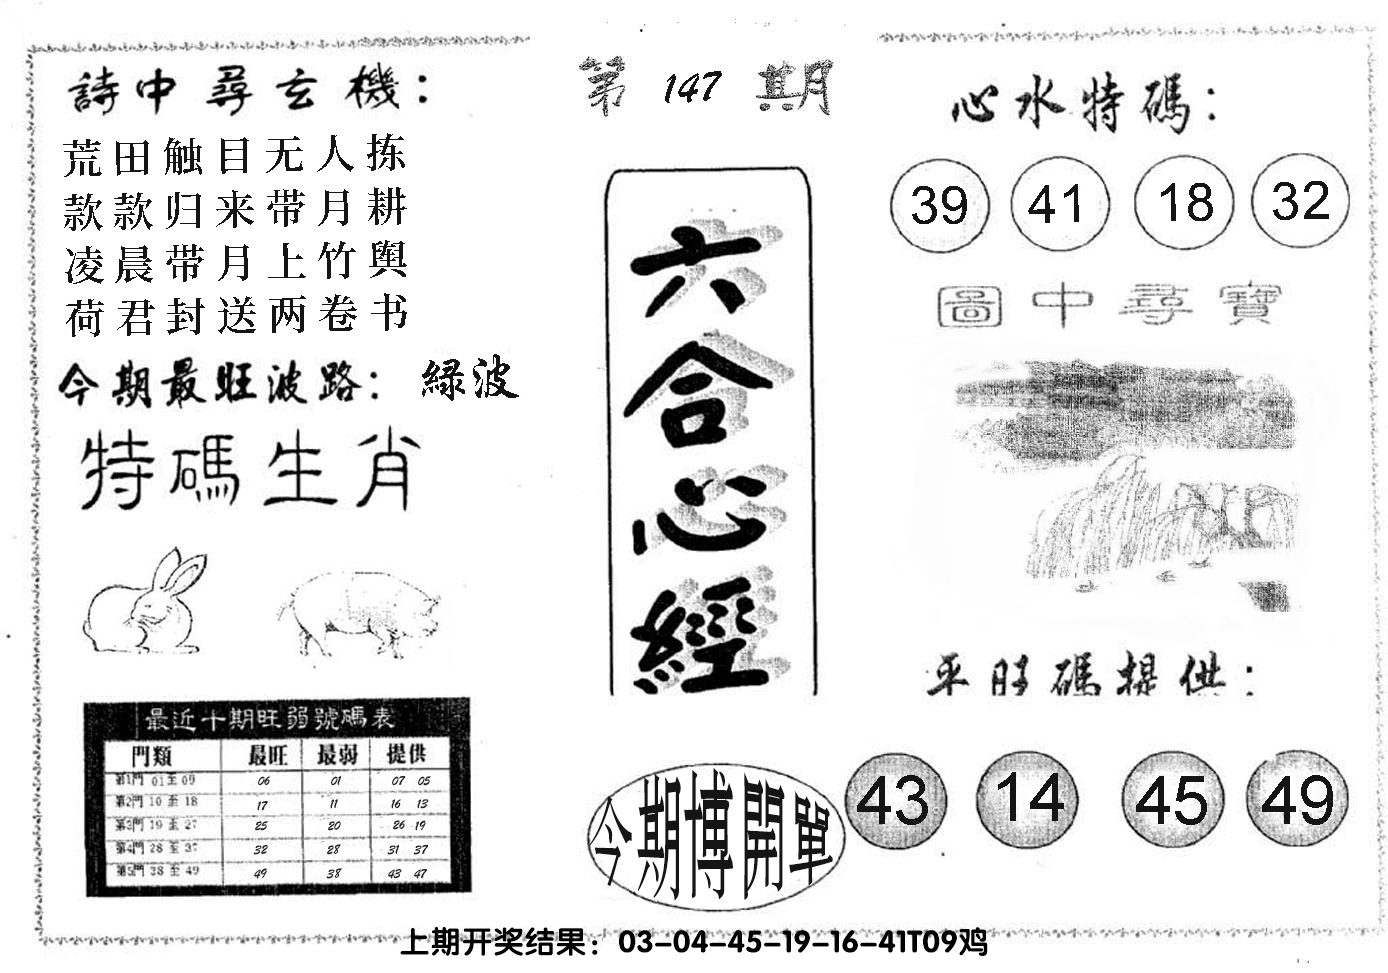 詩中尋玄機：
荒田触目无人拣
款款归来带月耕
凌晨带月上竹舆
荷君封送两卷书
今期最旺波路： 緑波
特碼生肖
最近十期旺弱號碼表
門類 最旺 最弱 提供
第1門 01至09 06 01 07 05
第2門 10至18 17 11 16 13
第3門 19至27 25 20 26 19
第4門 28至37 32 28 31 37
第5門 38至49 49 38 43 47
第147期
六合心經
今期博開單
心水特碼：
39 41 18 32
圖中尋寶
平旺碼提供：
43 14 45 49
上期开奖结果：03-04-45-19-16-41T09鸡